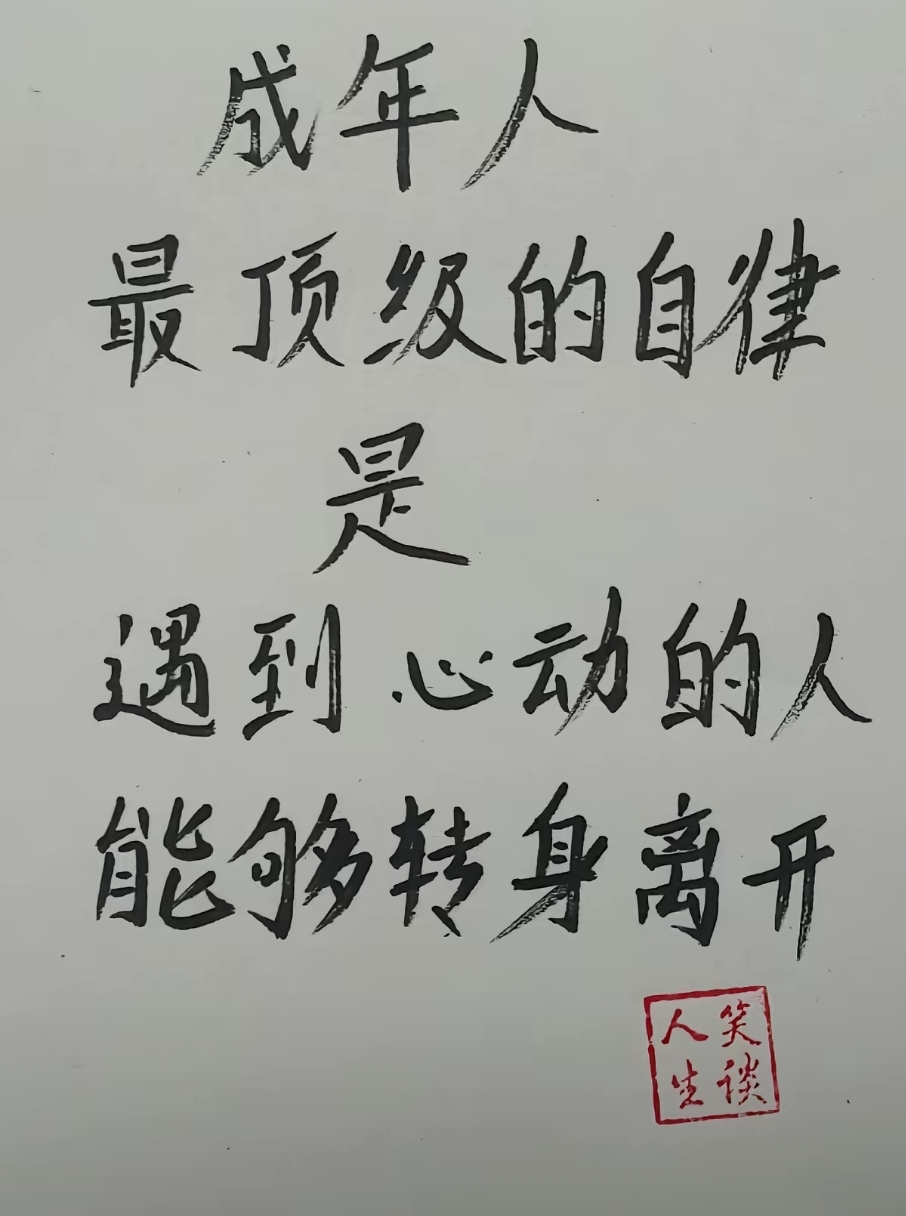 成年人
最顶级的自律
是
遇到心动的人
能够转身离开
笑谈
人生